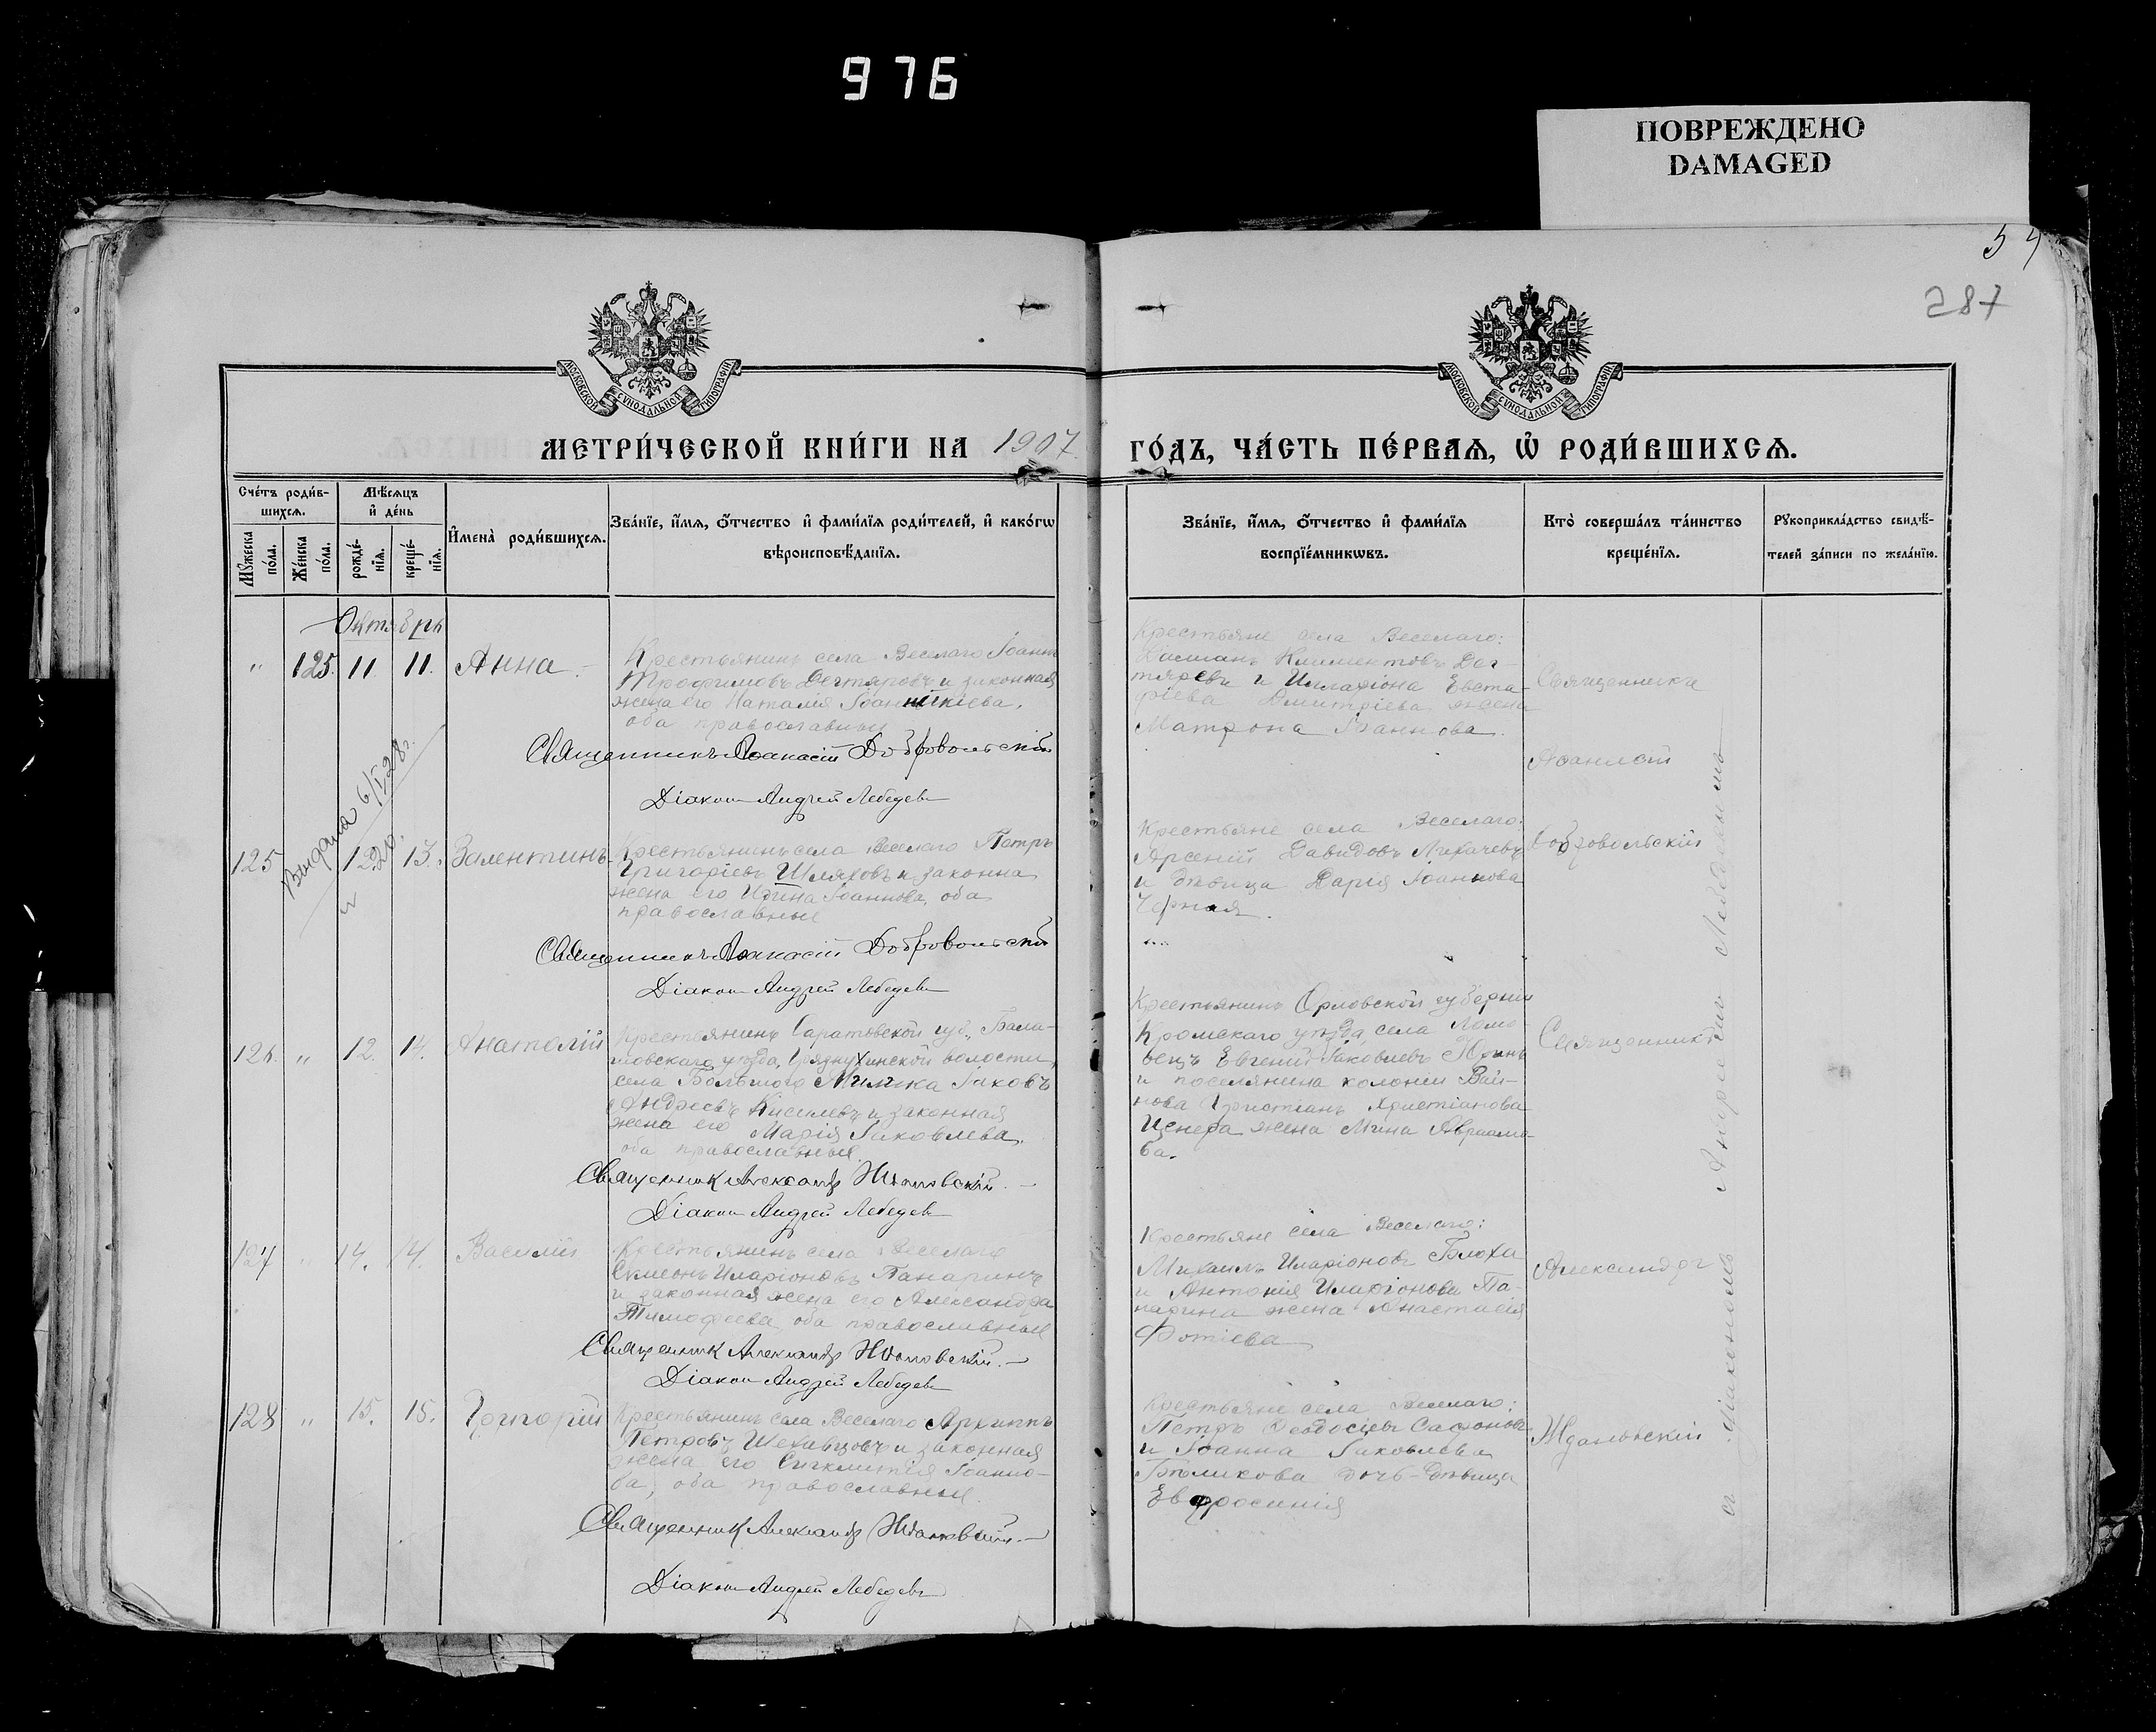 976
ПОВРЕЖДЕНО
DAMAGED
54
287
МОСКОВСКОЙ СѴНОДАЛЬНОЙ ТИПОГРАФІИ
МОСКОВСКОЙ СѴНОДАЛЬНОЙ ТИПОГРАФІИ
МЕТРИ́ЧЕСКОЙ КНИ́ГИ НА 1907
ГО́ДЪ, ЧА́СТЬ ПЕ́РВАѦ, Ѡ҆ РОДИ́ВШИХСѦ.
Сче́тъ роди́в-
шихсѧ.
Мѣ́сѧцъ
и҆ де́нь
Мꙋ́жеска
по́ла.
Же́нска
по́ла.
рожде́-
нїѧ.
креще́-
нїѧ.
И҆мена̀ роди́вшихсѧ.
Зва́нїе, и҆́мѧ, ѻ҆́тчество и҆ фами́лїѧ роди́телей, и҆ како́гѡ
вѣроисповѣ́данїѧ.
Зва́нїе, и҆́мѧ, ѻ҆́тчество и҆ фами́лїѧ
воспрїе́мникѡвъ.
Кто̀ соверша́лъ та́инство
креще́нїѧ.
Рꙋкоприкла́дство свидѣ́-
телей за́писи по жела́нїю.
Октябрь
" 125. 11 11. Анна.
Крестьянинъ села Веселаго Іоаннъ
Трофимовъ Дегтяровъ и законная
жена его Наталія Іоанникіева,
оба православные
Священникъ Аѳанасій Добровольскій
Діаконъ Андрей Лебедевъ
Крестьяне села Веселаго:
Касіанъ Климентовъ Дег-
тяревъ и Илларіона Евста-
фіева Дмитріева жена
Матрона Іоаннова.
Священникъ
Аѳанасій
Добровольскій
Выдана 6/I 28 г.
125 12 13. Валентинъ
Крестьянинъ села Веселаго Петръ
Григоріевъ Шляховъ и законная
жена его Ирина Іоаннова, оба
православные
Священникъ Аѳанасій Добровольскій
Діаконъ Андрей Лебедевъ
Крестьяне села Веселаго:
Арсеній Давидовъ Лихачевъ
и дѣвица Дарія Іоаннова
Черная.
126. " 12. 14. Анатолій
Крестьянинъ Саратовской губ., Бала-
шовскаго уѣзда, Грязнухинской волости,
села Большого Мелика Іаковъ
Андреевъ Киселевъ и законная
жена его Марія Іаковлева,
оба православные.
Священникъ Александръ Ждановскій.
Діаконъ Андрей Лебедевъ
Крестьянинъ Орловской губерніи
Кромскаго уѣзда, села Ломо-
вецъ Евгеній Іаковлевъ
и поселянина колоніи Вай-
нова Христіанъ Христіанова
жена Мина Авраамо-
ва.
Священникъ
Александръ
Ждановскій
127 " 14. 14. Василій
Крестьянинъ села Веселаго
Симеонъ Иларіоновъ Панаринъ
и законная жена его Александра
Тимофеева, оба православные
Священникъ Александръ Ждановскій.
Діаконъ Андрей Лебедевъ
Крестьяне села Веселаго:
Михаилъ Иларіоновъ Блоха
и Антонія Иларіонова Па-
нарина жена Анастасія
Фотіева
128 " 15. 15. Григорій
Крестьянинъ села Веселаго Архиппъ
Петровъ Шехавцовъ и законная
жена его Синклитія Іоанно-
ва, оба православные.
Священникъ Александръ Ждановскій.
Діаконъ Андрей Лебедевъ
Крестьяне села Веселаго:
Петръ Ѳеодосіевъ Сафоновъ
и Іоанна Іаковлева
Бѣликова дочь-дѣвица
Евфросинія
съ діакономъ Андреемъ Лебедевымъ